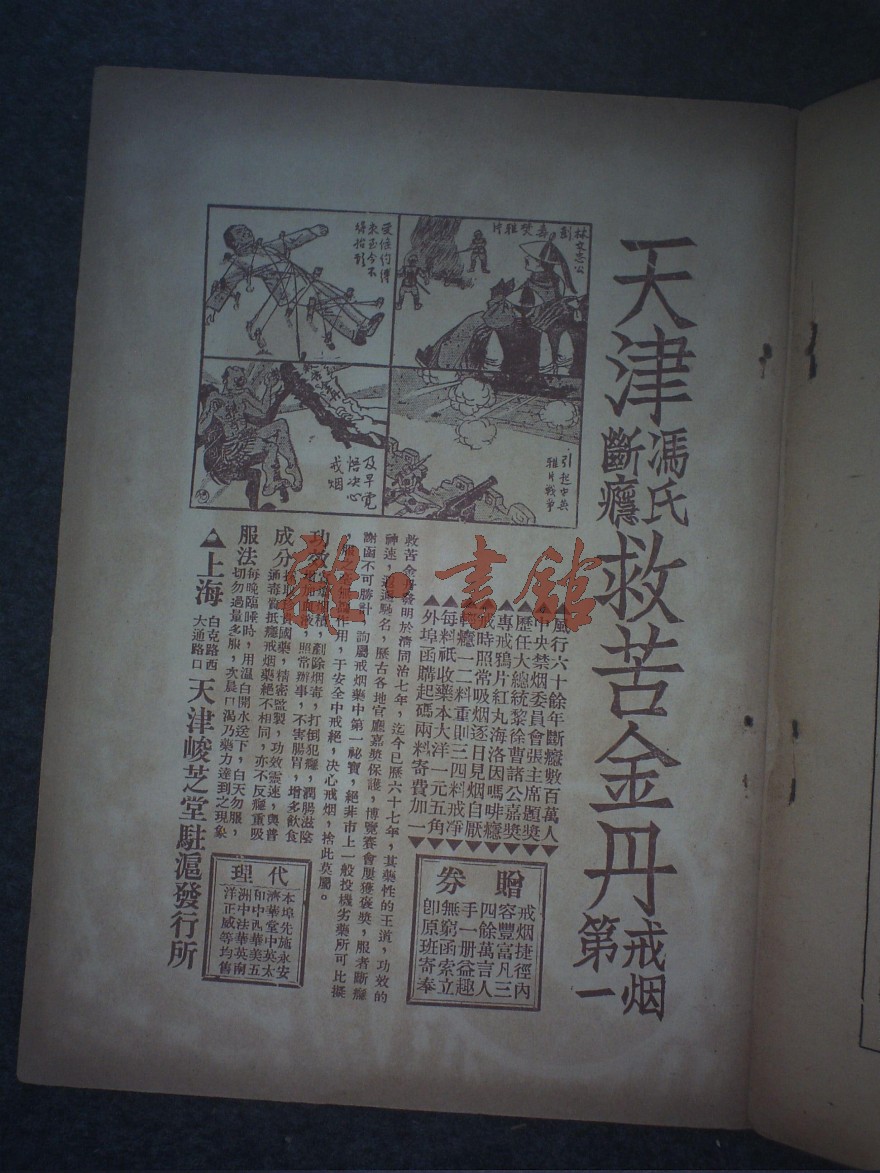 天津馮氏斷癮救苦金丹戒烟第一
林文忠公
引起中英
鴉片戰爭
及早覺
悟決心
戒烟
風行六十餘年斷癮數百萬人
中央禁烟委員會張主席題獎
歷任大總統黎徐曹諸公嘉獎
專戒鴉片紅丸海洛因嗎啡癮
戒時照常吸烟逐日見烟自厭
輕癮一二料重則三四料戒凈
每料祇收藥本大洋一元五角
外埠函購起碼兩料寄費加一
贈券
戒烟捷徑內
容豐富凡三
四餘萬言人
手一册益趣
無窮函索立
卽原班寄奉
救苦金丹發明於濟同治七年，迄今已歷六十七年，其藥性的王道，功效的
神速，遐邇馳名，歷古各地官廳嘉獎保護，博覽賽會屢獲褒獎，服者斷癮
謝函不可勝計，詢屬戒烟藥中第一秘寶，絕非市上一般投機劣藥所可比擬
作用，于安全中戒絕，決心戒烟，捨此莫屬。
功效
剷除烟毒，打倒犯癮，潤腸滋陰
血液，照常辦事，不害腸胃，增多飲食
成分
國藥，精密監製，功效靈速，與普
通毒質抵癮戒烟藥絕不相同，亦不反癮重吸
服法
每晚臨睡時，用溫白開水送下，白天勿服，
切勿過量多服，次晨口渴乃藥力達到之現象
上海
白克路西
大通路口
天津峻芝堂駐滬發行所
代理
本埠先施永安
濟華堂中英太
和中西華美五
洲中法華英南
洋正威等均售
雜·書館